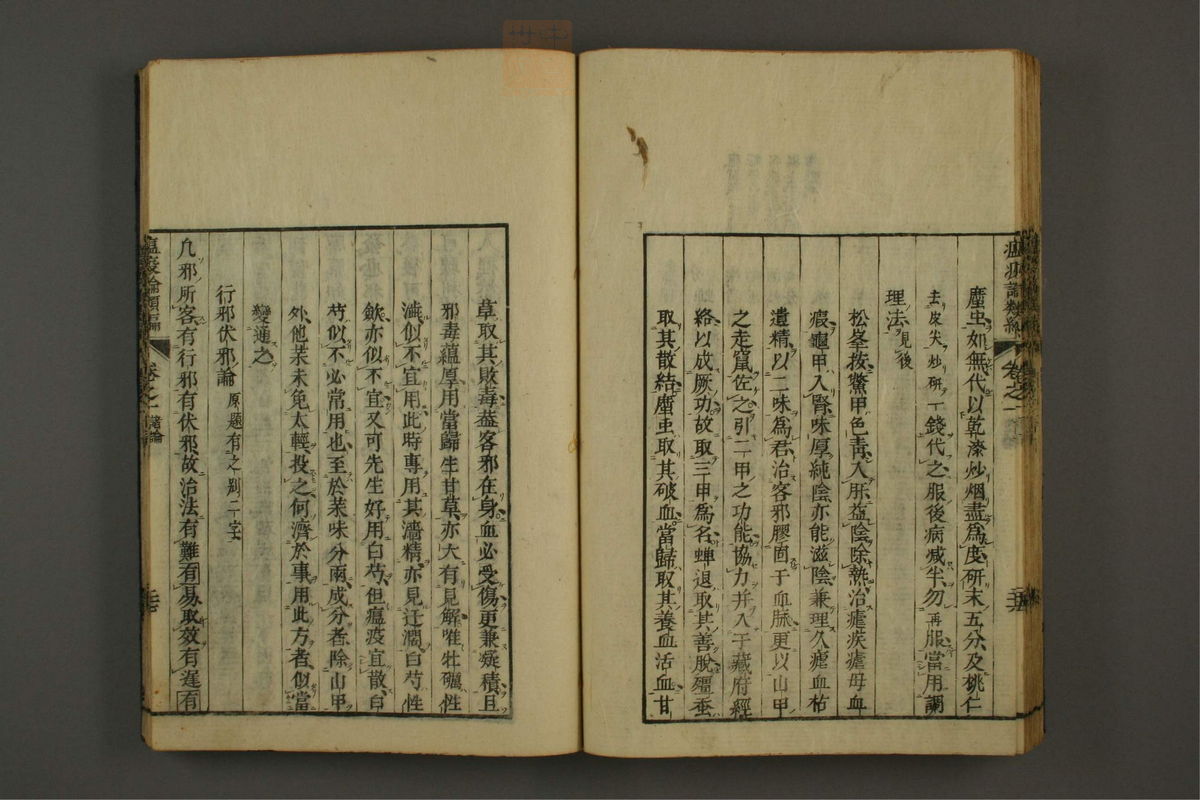 䗪虫如無代以乾漆炒烟盡為度研末五分及桃仁
去皮尖炒研一錢代之服後病減半勿再服當用調
理法見後
松峯按鱉甲色靑入肝益陰除熱治瘧疾瘧母血
瘕龜甲入腎味厚純陰亦能滋陰兼理久瘧血枯
遺精以二味為君治客邪膠固于血脉更以山甲
之走竄佐之引二甲之功能協力并入于藏府經
絡以成厥功故取三甲為名蟬退取其善脫殭蚕
取其散結䗪虫取其破血當歸取其養血活血甘
草取其敗毒葢客邪在身血必受傷更兼疑積且
邪毒蘊厚用當歸生甘草亦大有見解唯牡礪性
濇似不宜用此時專用其濇精亦見迂濶白芍性
歛亦似不宜又可先生好用白芍但瘟疫宜散白
芍似不必常用也至於藥味分兩成分者除山甲
外他藥未免太輕投之何濟於事用此方者似當
變通之
行邪伏邪論 原題有之别二字
凡邪所客有行邪有伏邪故治法有難有易取效有遲有
瘟疫論類編 卷之一 諸論